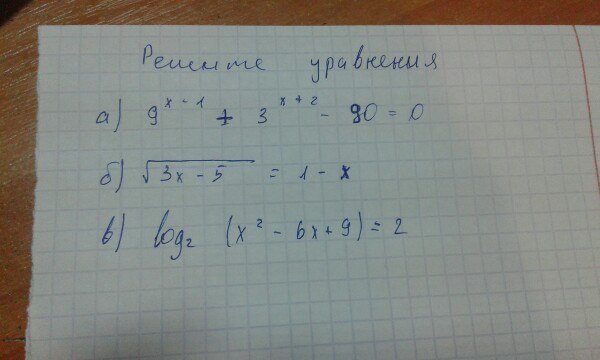 Решите уравнения
а) 9^{x-1} + 3^{x+2} - 90 = 0
б) √(3x - 5) = 1 - x
в) log₂ (x² - 6x + 9) = 2